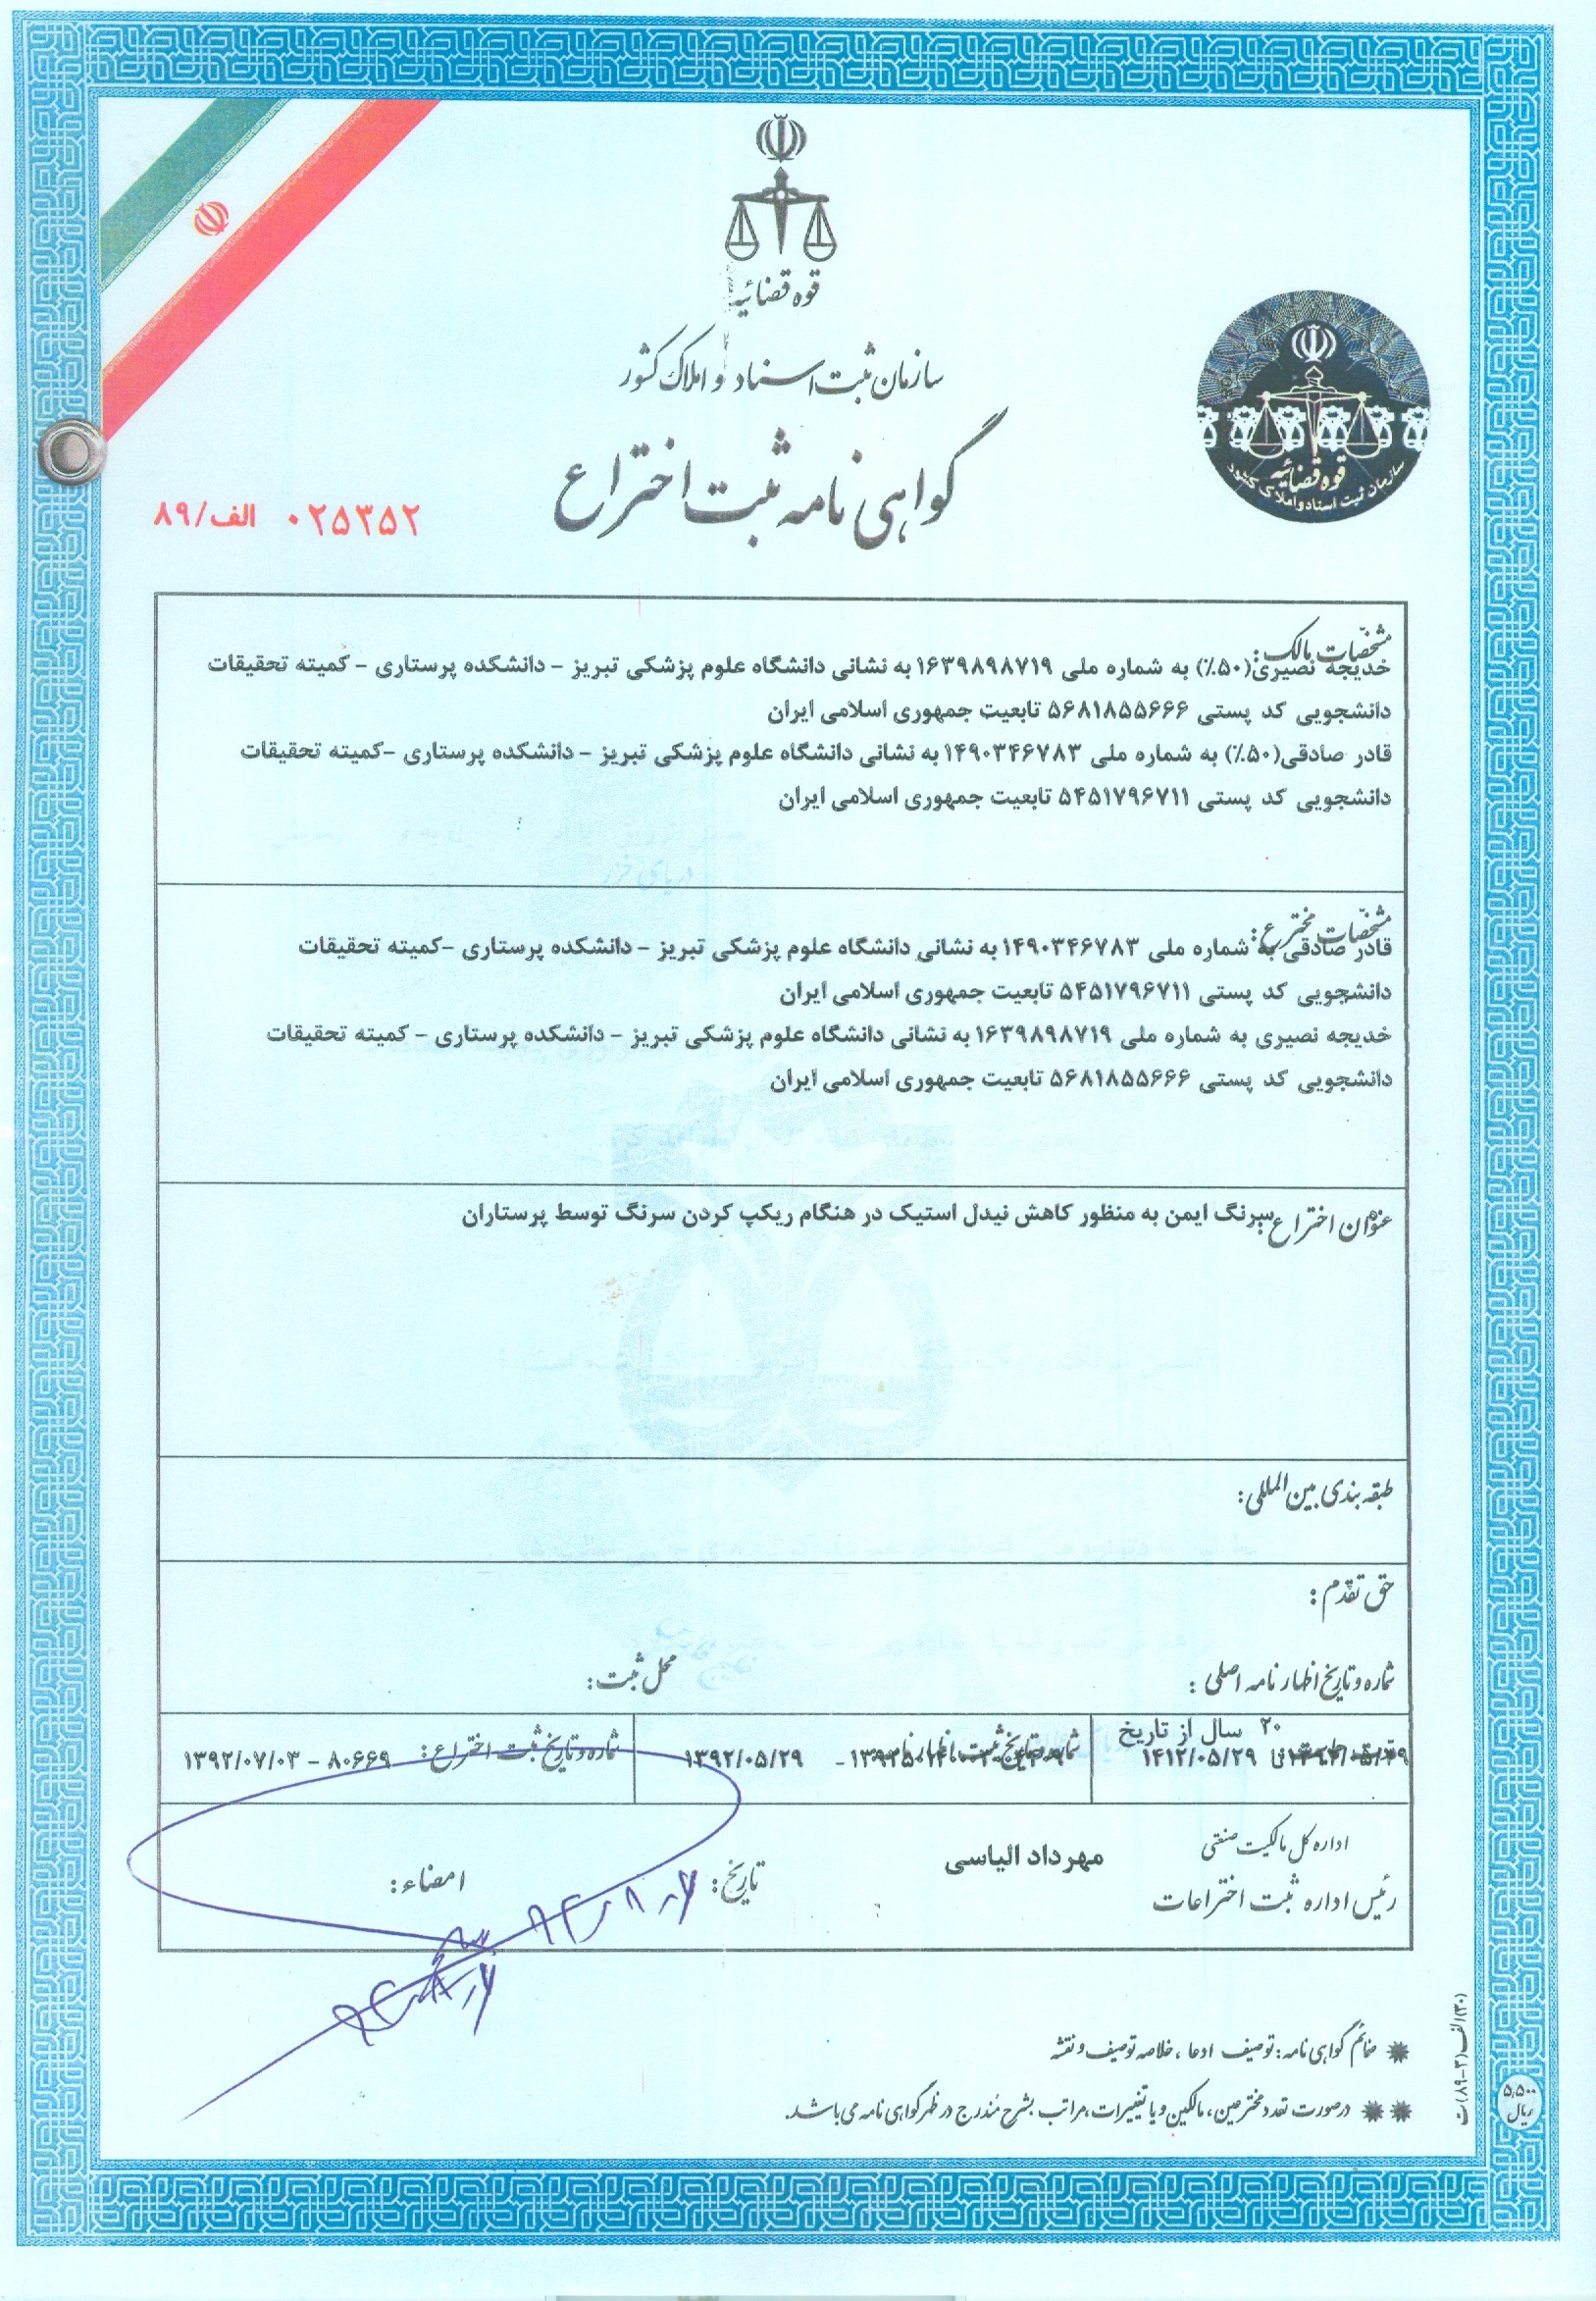 قوه قضائیه
سازمان ثبت اسناد و املاک کشور
گواهی نامه ثبت اختراع
قوه قضائیه
سازمان ثبت اسناد و املاک کشور
۰۲۵۳۵۲ الف/۸۹
مشخصات مالک:
خدیجه نصیری(۵۰٪) به شماره ملی ۱۶۳۹۸۹۸۷۱۹ به نشانی دانشگاه علوم پزشکی تبریز - دانشکده پرستاری - کمیته تحقیقات
دانشجویی کد پستی ۵۶۸۱۸۵۵۶۶۶ تابعیت جمهوری اسلامی ایران
قادر صادقی(۵۰٪) به شماره ملی ۱۴۹۰۳۴۶۷۸۳ به نشانی دانشگاه علوم پزشکی تبریز - دانشکده پرستاری -کمیته تحقیقات
دانشجویی کد پستی ۵۴۵۱۷۹۶۷۱۱ تابعیت جمهوری اسلامی ایران
مشخصات مخترع:
قادر صادقی به شماره ملی ۱۴۹۰۳۴۶۷۸۳ به نشانی دانشگاه علوم پزشکی تبریز - دانشکده پرستاری -کمیته تحقیقات
دانشجویی کد پستی ۵۴۵۱۷۹۶۷۱۱ تابعیت جمهوری اسلامی ایران
خدیجه نصیری به شماره ملی ۱۶۳۹۸۹۸۷۱۹ به نشانی دانشگاه علوم پزشکی تبریز - دانشکده پرستاری - کمیته تحقیقات
دانشجویی کد پستی ۵۶۸۱۸۵۵۶۶۶ تابعیت جمهوری اسلامی ایران
عنوان اختراع: سرنگ ایمن به منظور کاهش نیدل استیک در هنگام ریکپ کردن سرنگ توسط پرستاران
طبقه بندی بین المللی:
حق تقدم:
شماره و تاریخ اظهارنامه اصلی: محل ثبت:
۲۰ سال از تاریخ
تا ۱۴۱۲/۰۵/۲۹
شماره و تاریخ ثبت اظهارنامه - ۱۳۹۲/۰۵/۲۹
شماره و تاریخ ثبت اختراع: ۸۰۶۶۹ - ۱۳۹۲/۰۷/۰۳
اداره کل مالکیت صنعتی
رئیس اداره ثبت اختراعات
مهرداد الیاسی
تاریخ:
امضاء:
ضمائم گواهی نامه: توصیف ادعا، خلاصه توصیف و نقشه
درصورت تعدد مخترعین، مالکین و یا تغییرات، مراتب بشرح مندرج در ظهر گواهی نامه می باشد.
۵,۵۰۰
ریال